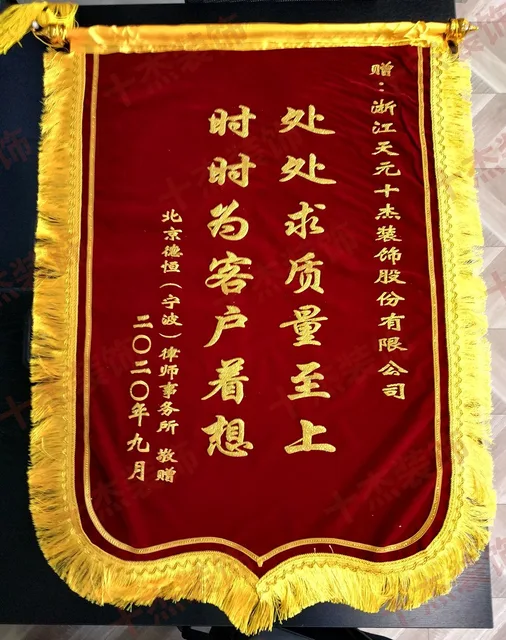 赠：浙江天元十杰装饰股份有限公司
处处求质量至上
时时为客户着想
北京德恒（宁波）律师事务所 敬赠
二〇二〇年九月
十杰装饰